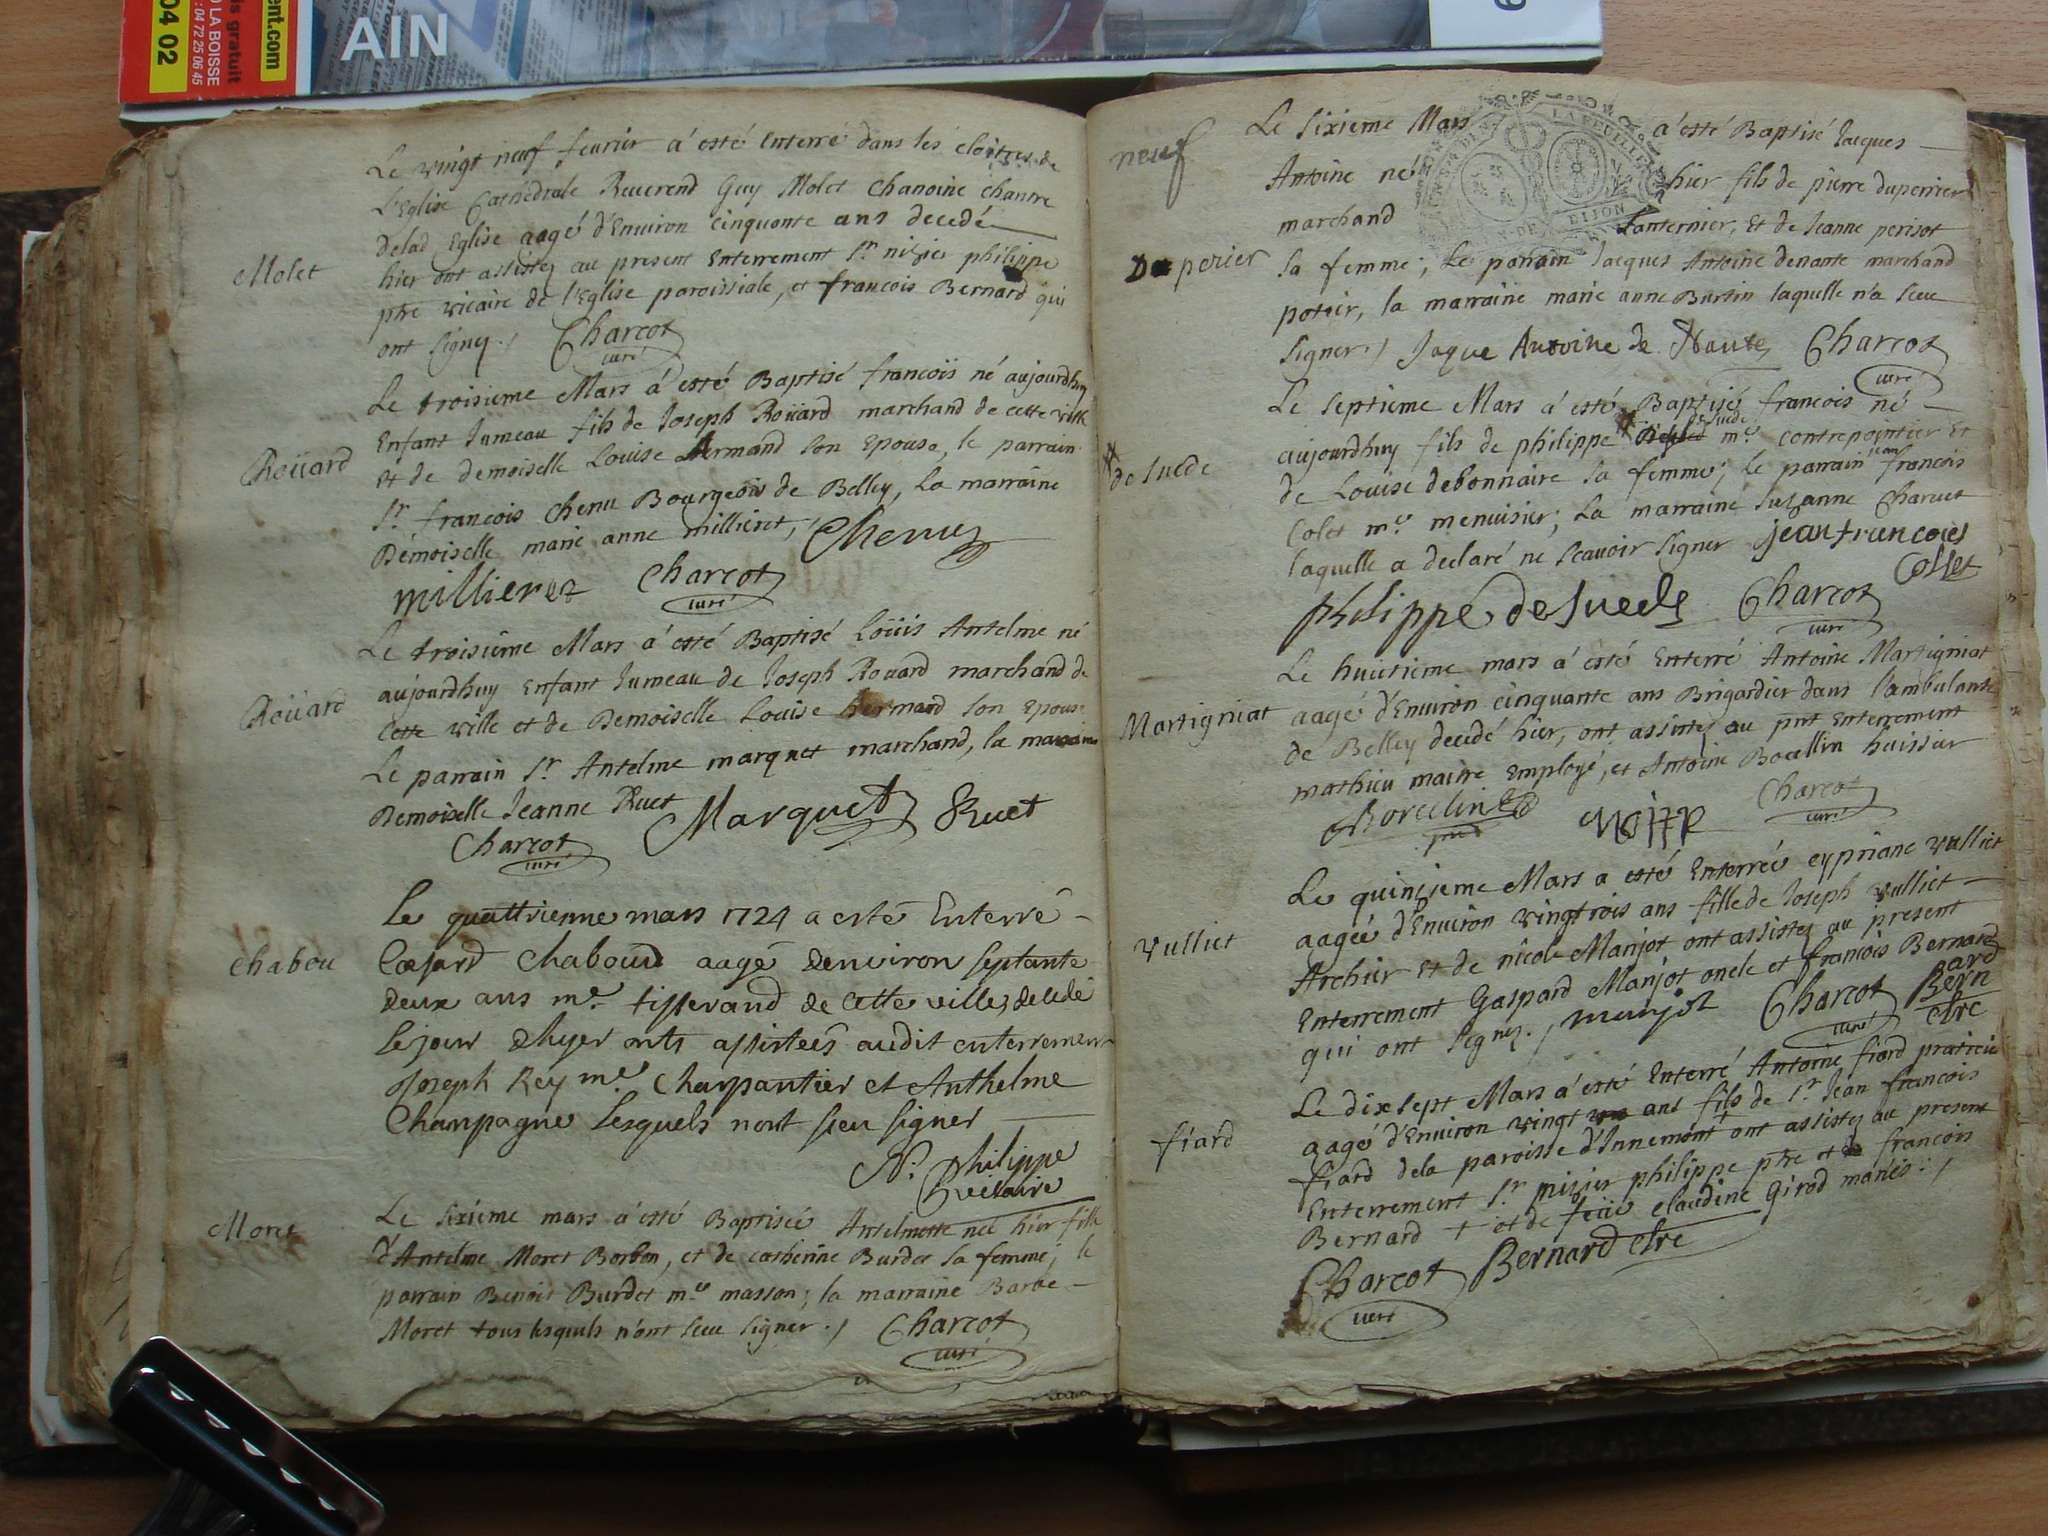 ent.com
is gratuit
LA BOISSE
: 04 72 25 06 45
04 02
AIN
9
Le vingt neuf feurier á esté Enterré dans les cloitres de
L'Eglise Cathédrale Reuerend Guy Molet Chanoine Chantre
delad Eglise aagé d'Enuiron Cinquante ans decedé
Molet
hier ont assistez au present Enterrement Sr. nizier philippe
ptre vicaire de l'Eglise paroissiale, et francois Bernard qui
ont signez./ Charcot
curé
Le troisieme Mars á esté Baptisé francois né aujourdhuy
Enfant Jumeau fils de Joseph Roüard marchand de cette ville
Roüard
et de demoiselle Louise Armand son Epouse, le parrain
Sr. francois Chenu Bourgeois de Belley, La marraine
Démoiselle marie anne millieret,/ Chenu
millieret Charcot
curé
Le troisiéme Mars á esté Baptisé Loüis Antelme né
aujourdhuy Enfant Jumeau de Joseph Roüard marchand de
Roüard
Cette ville et de Demoiselle Louise hermand son Epouse
Le parrain Sr. Antelme marquet marchand, la marraine
Demoiselle Jeanne Ruet Marquet Ruet
Charcot
curé
Le quattrienne mars 1724 a esté Enterré
Chabou
Cæsard Chaboud aagé denuiron septante
deux ans me. tisserand de cette ville, decedé
le jour dhyer onts assistées audit enterrement
Joseph Rey me. Charpantier et Anthelme
Champagne Lesquels nont sceu signer
N. Philippe
vicaire
Moret
Le sixieme mars á esté Baptisée Antelmette neé hier fille
d'Antelme Moret Borbon, et de catherine Burdet sa femme; le
parrain Benoit Burdet me. masson; la marraine Barbe
Moret tous lesquels n'ont sceu signer./ Charcot
curé
neuf
Le sixieme Mars á esté Baptisé Jacques
Antoine né hier fils de pierre duperrier
marchand Lanternier, Et de Jeanne perisot
LA FEUILLE
DIJON
Duperier
sa femme; Le parrain Jacques Antoine denante marchand
potier, la marraine marie anne Burtin laquelle n'a sceu
signer./ Jaque Antoine de Nante Charcot
curé
Le septieme Mars á esté Baptisé francois né
aujourdhuy fils de philippe de suede me. contrepointier Et
de suede
de Louise debonnaire sa femme; le parrain jean francois
Colet me. menuisier; La marraine Suzanne Charuet
laquelle a declaré ne scauoir signer jean francoies
Collet
philippe de suede Charcot
curé
Le huictieme mars á esté Enterré Antoine Martigniat
aagé d'Enuiron cinquante ans Brigardier dans l'ambulante
Martigniat
de Belley decedé hier, ont assistez au pnt Enterrement
mathieu maitre Employé, et Antoine Bocellin huissier
Charcot
curé
Le quinzieme Mars a esté Enterrée cypriane vulliet
aagée d'Enuiron vingtrois ans fille de Joseph vulliet
vulliet
Archier Et de nicole Manjot ont assistez au present
Enterrement Gaspard Manjot oncle et francois Bernard
qui ont signez./ manjot Charcot Bernard
curé clre
Le dixsept Mars á esté Enterré Antoine fiard praticien
aagé d'Enuiron vingt ans fils de Sr. Jean francois
fiard
fiard dela paroisse d'Innemont ont assistez au present
Enterrement Sr. nizier philippe ptre et francois
Bernard + et de feüe claudine Girod mariés./
Charcot Bernard clre
curé